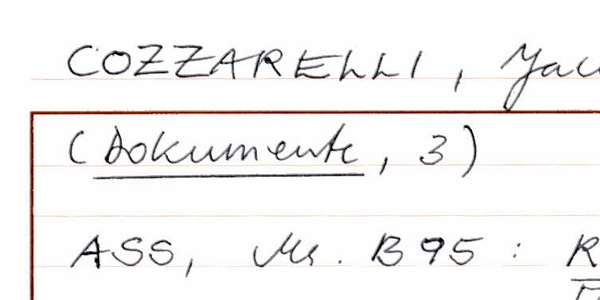 COZZARELLI, Jac
(Dokumente, 3)
ASS, Ms. B 95 : R